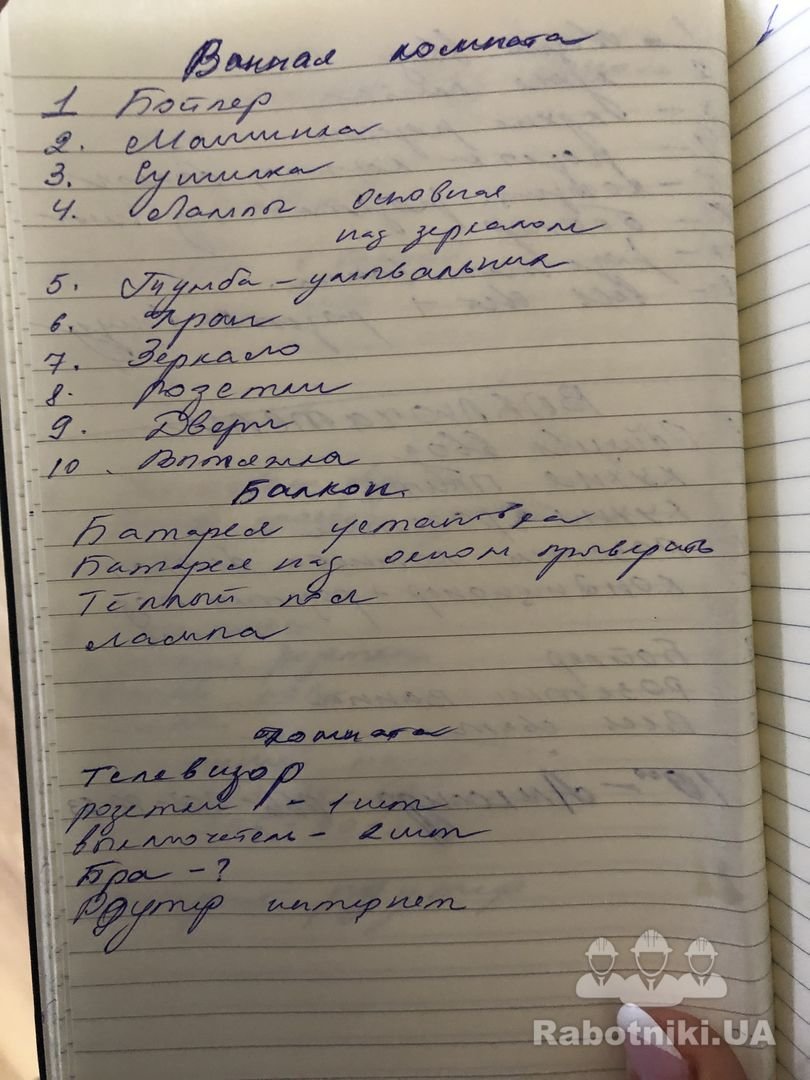 Ванная комната
1 Бойлер
2. Машинка
3. Сушилка
4. Лампы основная
над зеркалом
5. Тумба - умывальник
6. Кран
7. Зеркало
8. розетки
9. Двери
10. Вытяжка
Балкон.
Батарея установка
Батарея под окном
Тёплый пол
лампа
комната
Телевизор
розетки - 1 шт
выключатель - 2 шт
Бра - ?
Роутер интернет
Rabotniki.UA